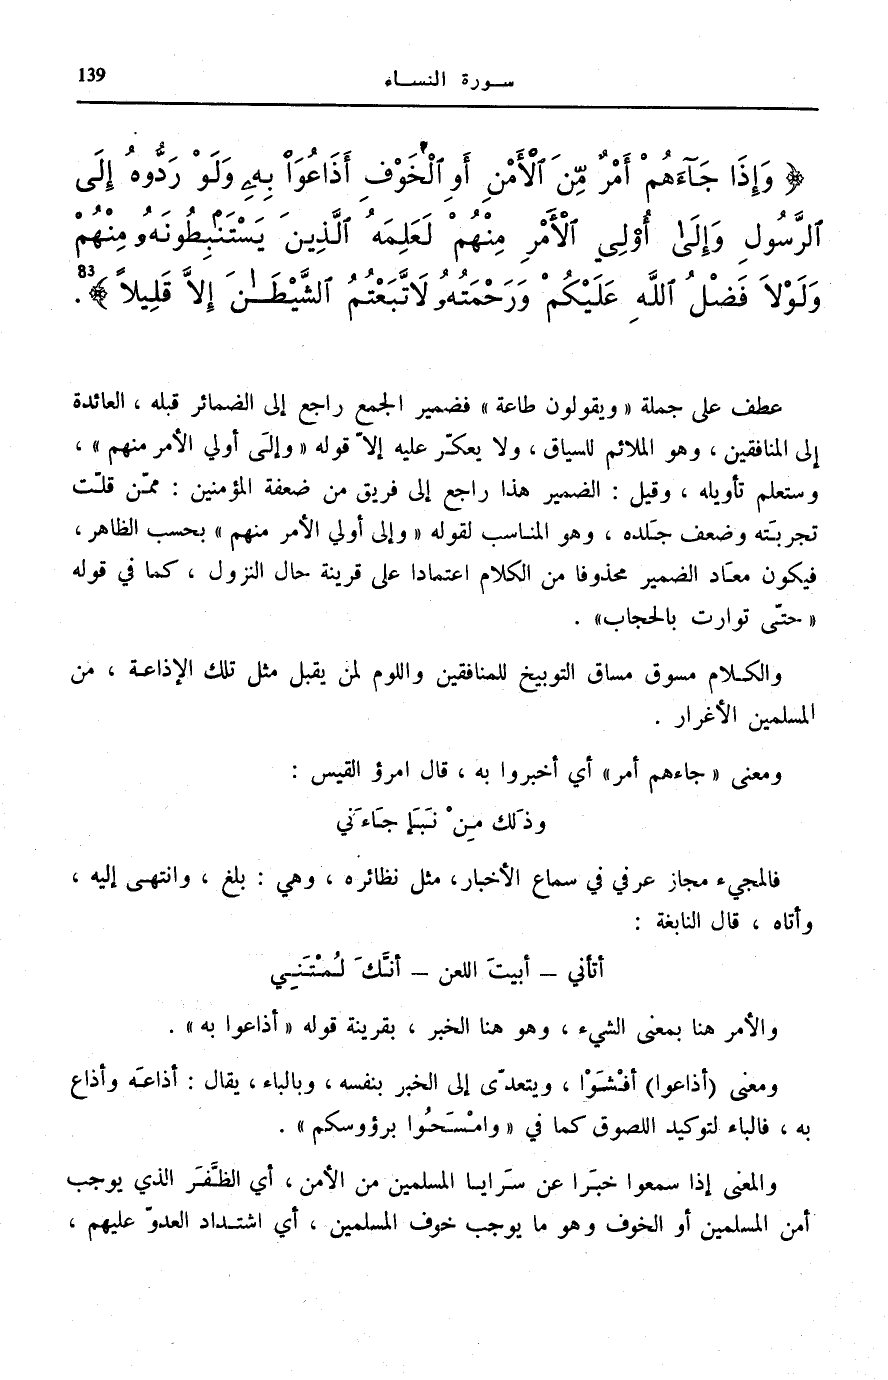 139
سـورة النسـاء
﴿ وَإِذَا جَآءَهُمْ أَمْرٌ مِّنَ ٱلْأَمْنِ أَوِ ٱلْخَوْفِ أَذَاعُوا۟ بِهِۦ وَلَوْ رَدُّوهُ إِلَى
ٱلرَّسُولِ وَإِلَىٰ أُوْلِي ٱلْأَمْرِ مِنْهُمْ لَعَلِمَهُ ٱلَّذِينَ يَسْتَنۢبِطُونَهُۥ مِنْهُمْ
وَلَوْلَا فَضْلُ ٱللَّهِ عَلَيْكُمْ وَرَحْمَتُهُۥ لَاتَّبَعْتُمُ ٱلشَّيْطَـٰنَ إِلَّا قَلِيلاً ﴾ 83 .
عطف على جملة « ويقولون طاعة » فضمير الجمع راجع إلى الضمائر قبله ، العائدة
إلى المنافقين ، وهو الملائم للسياق ، ولا يعكّر عليه إلاّ قوله « وإلَى أولي الأمر منهم » ،
وستعلم تأويله ، وقيل : الضمير هذا راجع إلى فريق من ضعفة المؤمنين : ممّن قلّت
تجربتَه وضعف جَلده ، وهو المناسب لقوله « وإلى أولي الأمر منهم » بحسب الظاهر ،
فيكون معَاد الضمير محذوفا من الكلام اعتمادا على قرينة حال النزول ، كما في قوله
« حتّى توارت بالحجاب» .
والكـلام مسوق مساق التوبيخ للمنافقين واللوم لمن يقبل مثل تلك الإذاعة ، من
المسلمين الأغرار .
ومعنى « جاءهم أمر» أي أخبروا به ، قال امرؤ القيس :
وذَلك مِنْ نَبَإٍ جَاءَني
فالمجيء مجاز عرفي في سماع الأخبار، مثل نظائره ، وهي : بلغ ، وانتهى إليه ،
وأتاه ، قال النابغة :
أتأني – أبيتَ اللعن – أنَّكَ لُمْتَنِي
والأمر هنا بمعنى الشيء ، وهو هنا الخبر ، بقرينة قوله « أذاعوا به » .
ومعنى (أذاعوا) أفْشَوْا ، ويتعدّى إلى الخبر بنفسه ، وبالباء ، يقال : أذاعَه وأذاع
به ، فالباء لتوكيد اللصوق كما في « وامْسَحُوا برؤوسكم » .
والمعنى إذا سمعوا خبَرا عن سَرايا المسلمين من الأمن ، أي الظَّفَر الذي يوجب
أمن المسلمين أو الخوف وهو ما يوجب خوف المسلمين ، أي اشتداد العدوّ عليهم ،